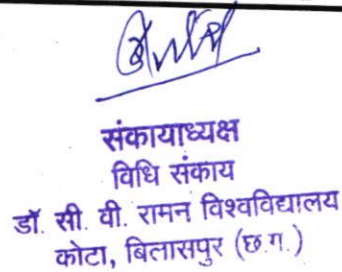 संकायाध्यक्ष
विधि संकाय
डॉ. सी. वी. रामन विश्वविद्यालय
कोटा, बिलासपुर (छ.ग.)